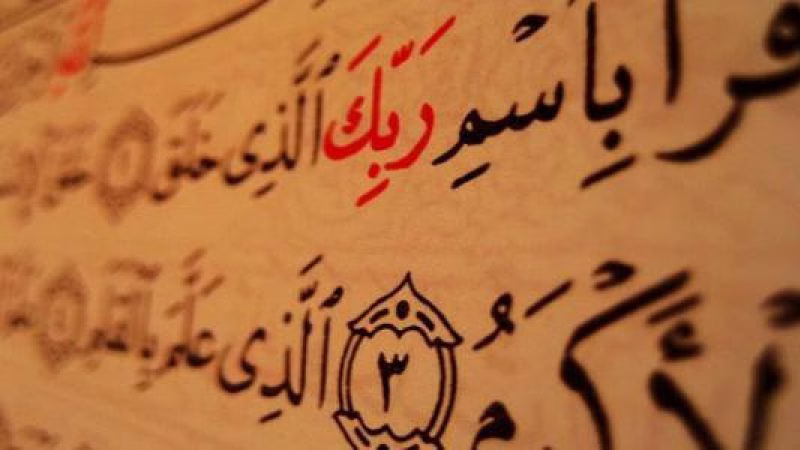 قرأ بِاسْمِ رَبِّكَ ٱلَّذِى خَلَقَ ١
لأَكْرَمُ ٣ ٱلَّذِى عَلَّمَ بِٱلْقَلَمِ